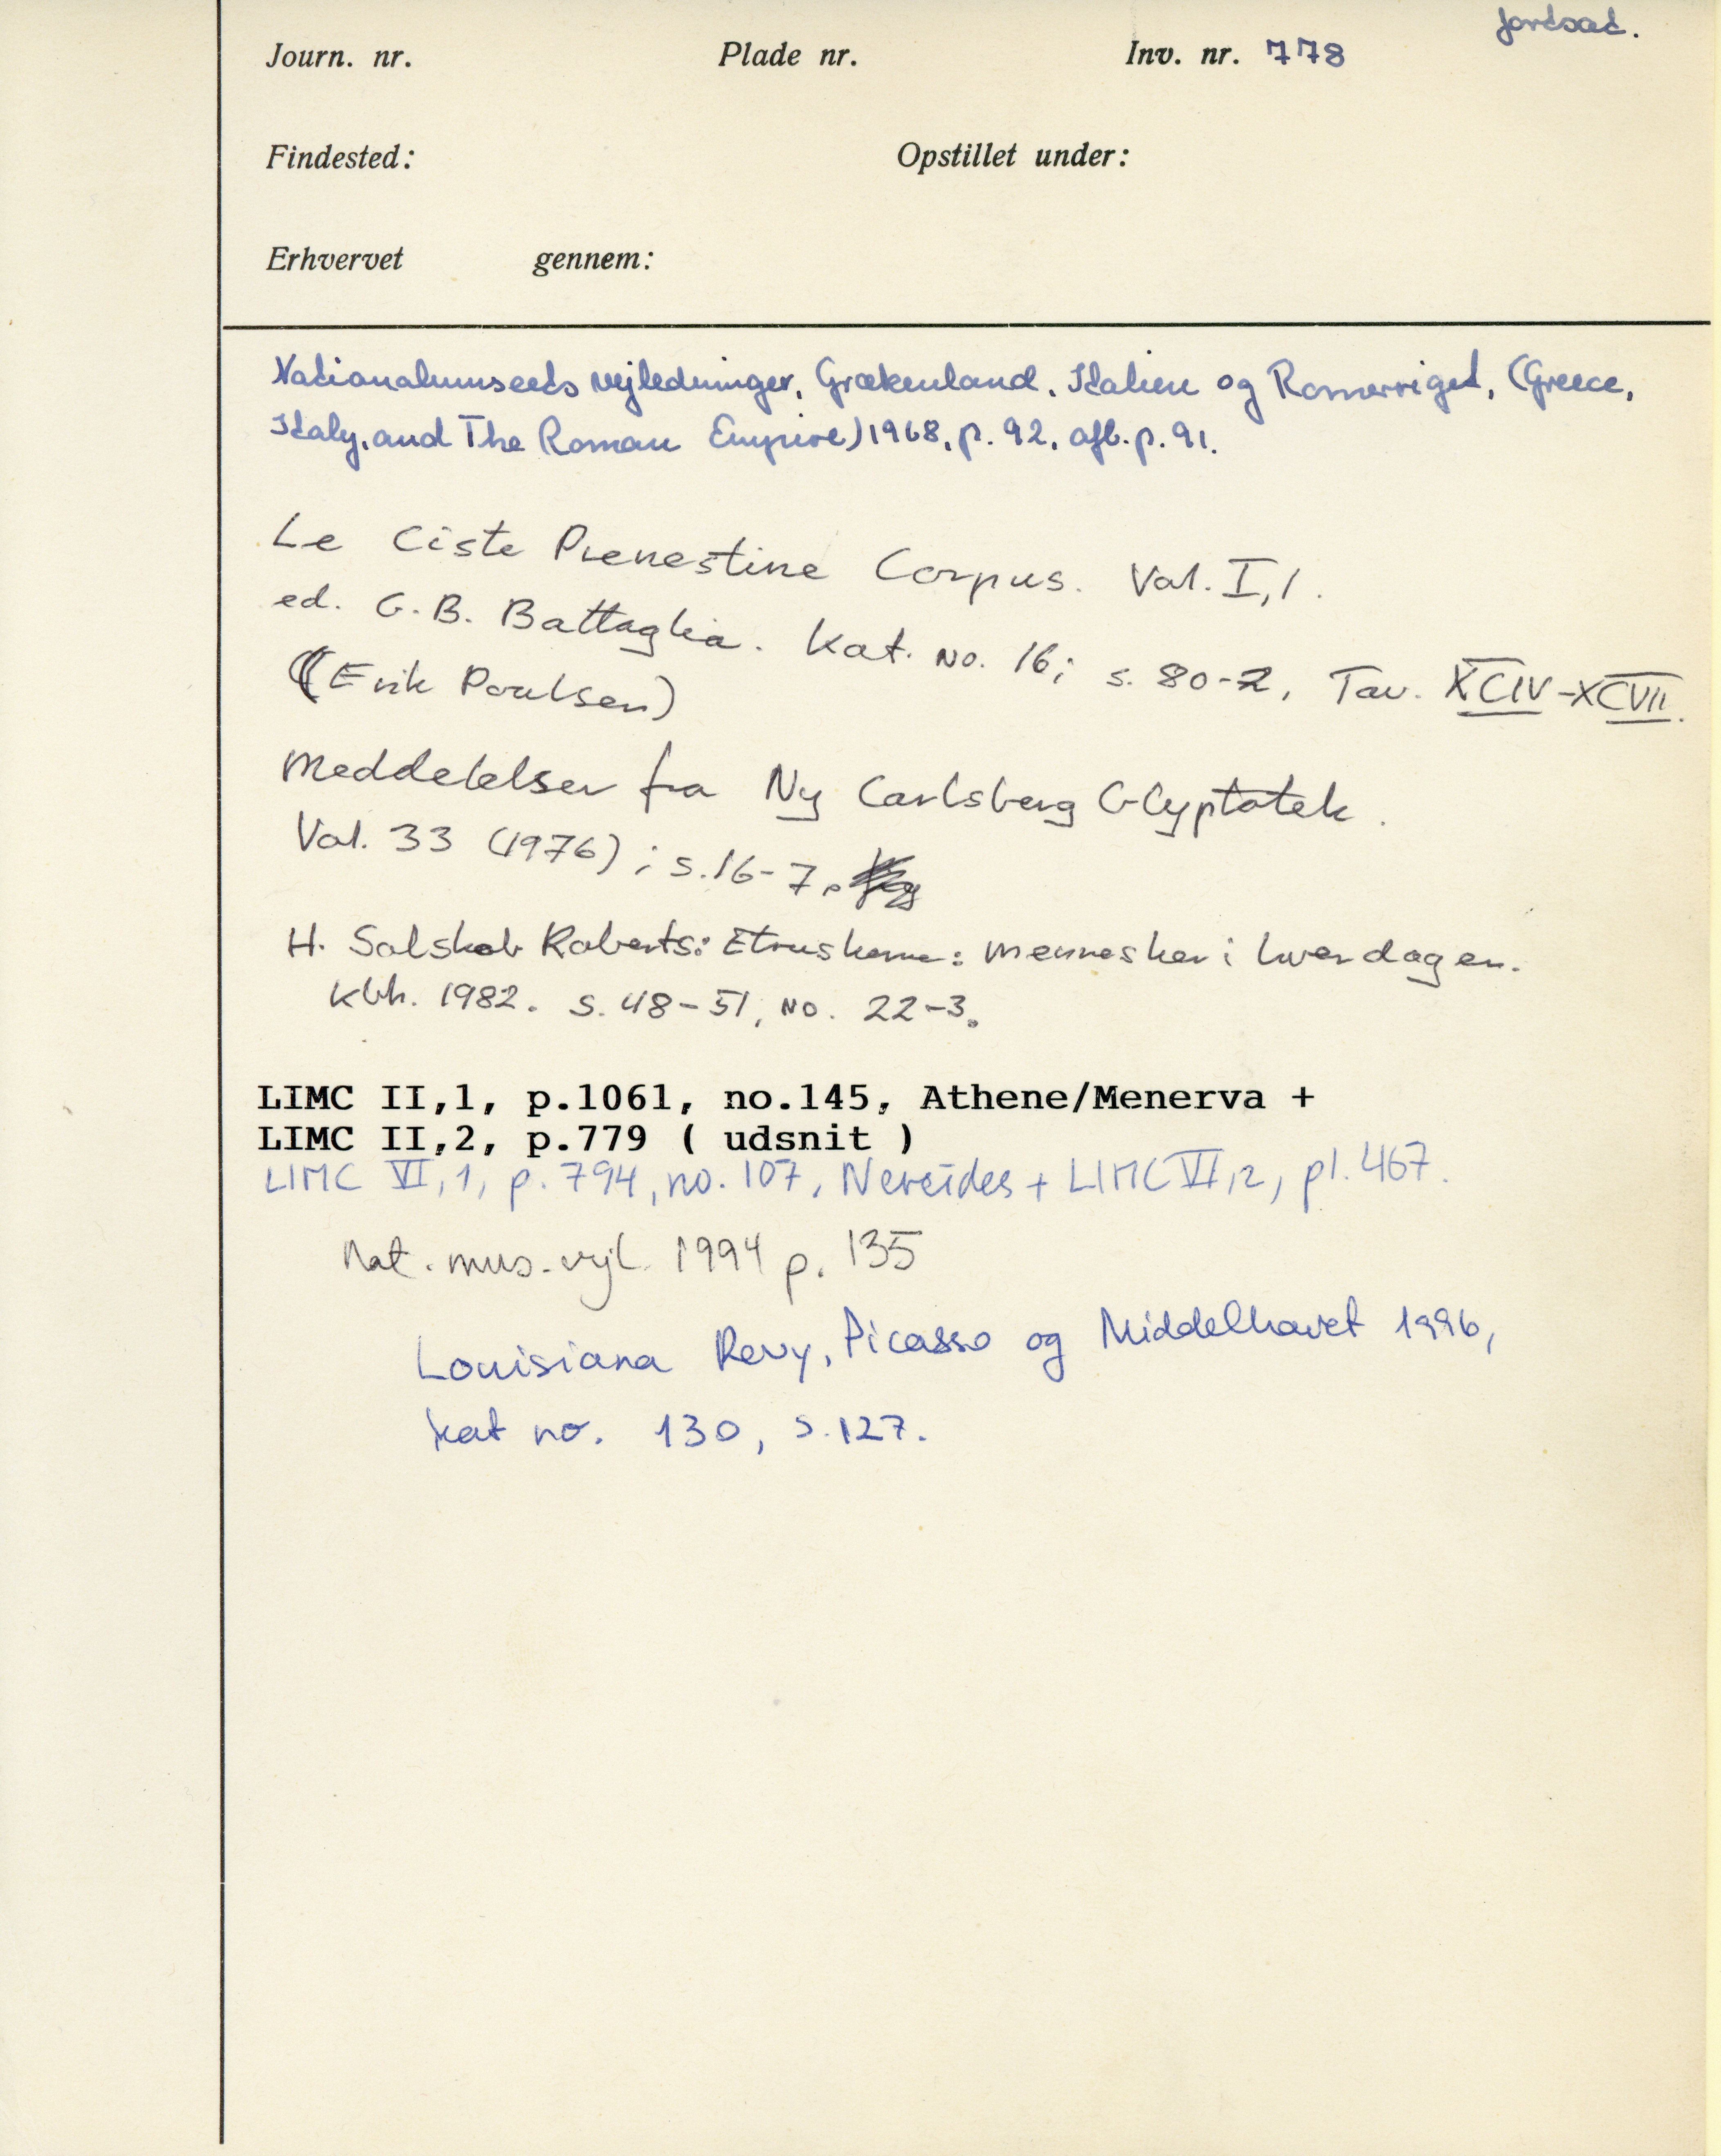 fortsat.
Journ. nr. Plade nr. Inv. nr. 778
Findested: Opstillet under:
Erhvervet gennem:
Nationalmuseets vejledninger, Grækenland, Italien og Romerriget, (Greece,
Italy, and The Roman Empire) 1968, p. 92, afb. p. 91.
Le Ciste Prenestine Corpus. Vol. I,1.
ed. G.B. Battaglia. Kat. no. 16; s. 80-2, Tav. XCIV-XCVII.
(Erik Poulsen)
Meddelelser fra Ny Carlsberg Glyptotek.
Vol. 33 (1976); s. 16-7.
H. Salskov Roberts: Etruskerne: mennesker i hverdagen.
Kbh. 1982. s. 48-51, no. 22-3.
LIMC II,1, p.1061, no.145, Athene/Menerva +
LIMC II,2, p.779 ( udsnit )
LIMC VI,1, p. 794, no. 107, Nereides + LIMC VI,2, pl. 467.
Nat. mus. vejl. 1994 p. 135
Louisiana Revy, Picasso og Middelhavet 1996,
kat no. 130, s. 127.